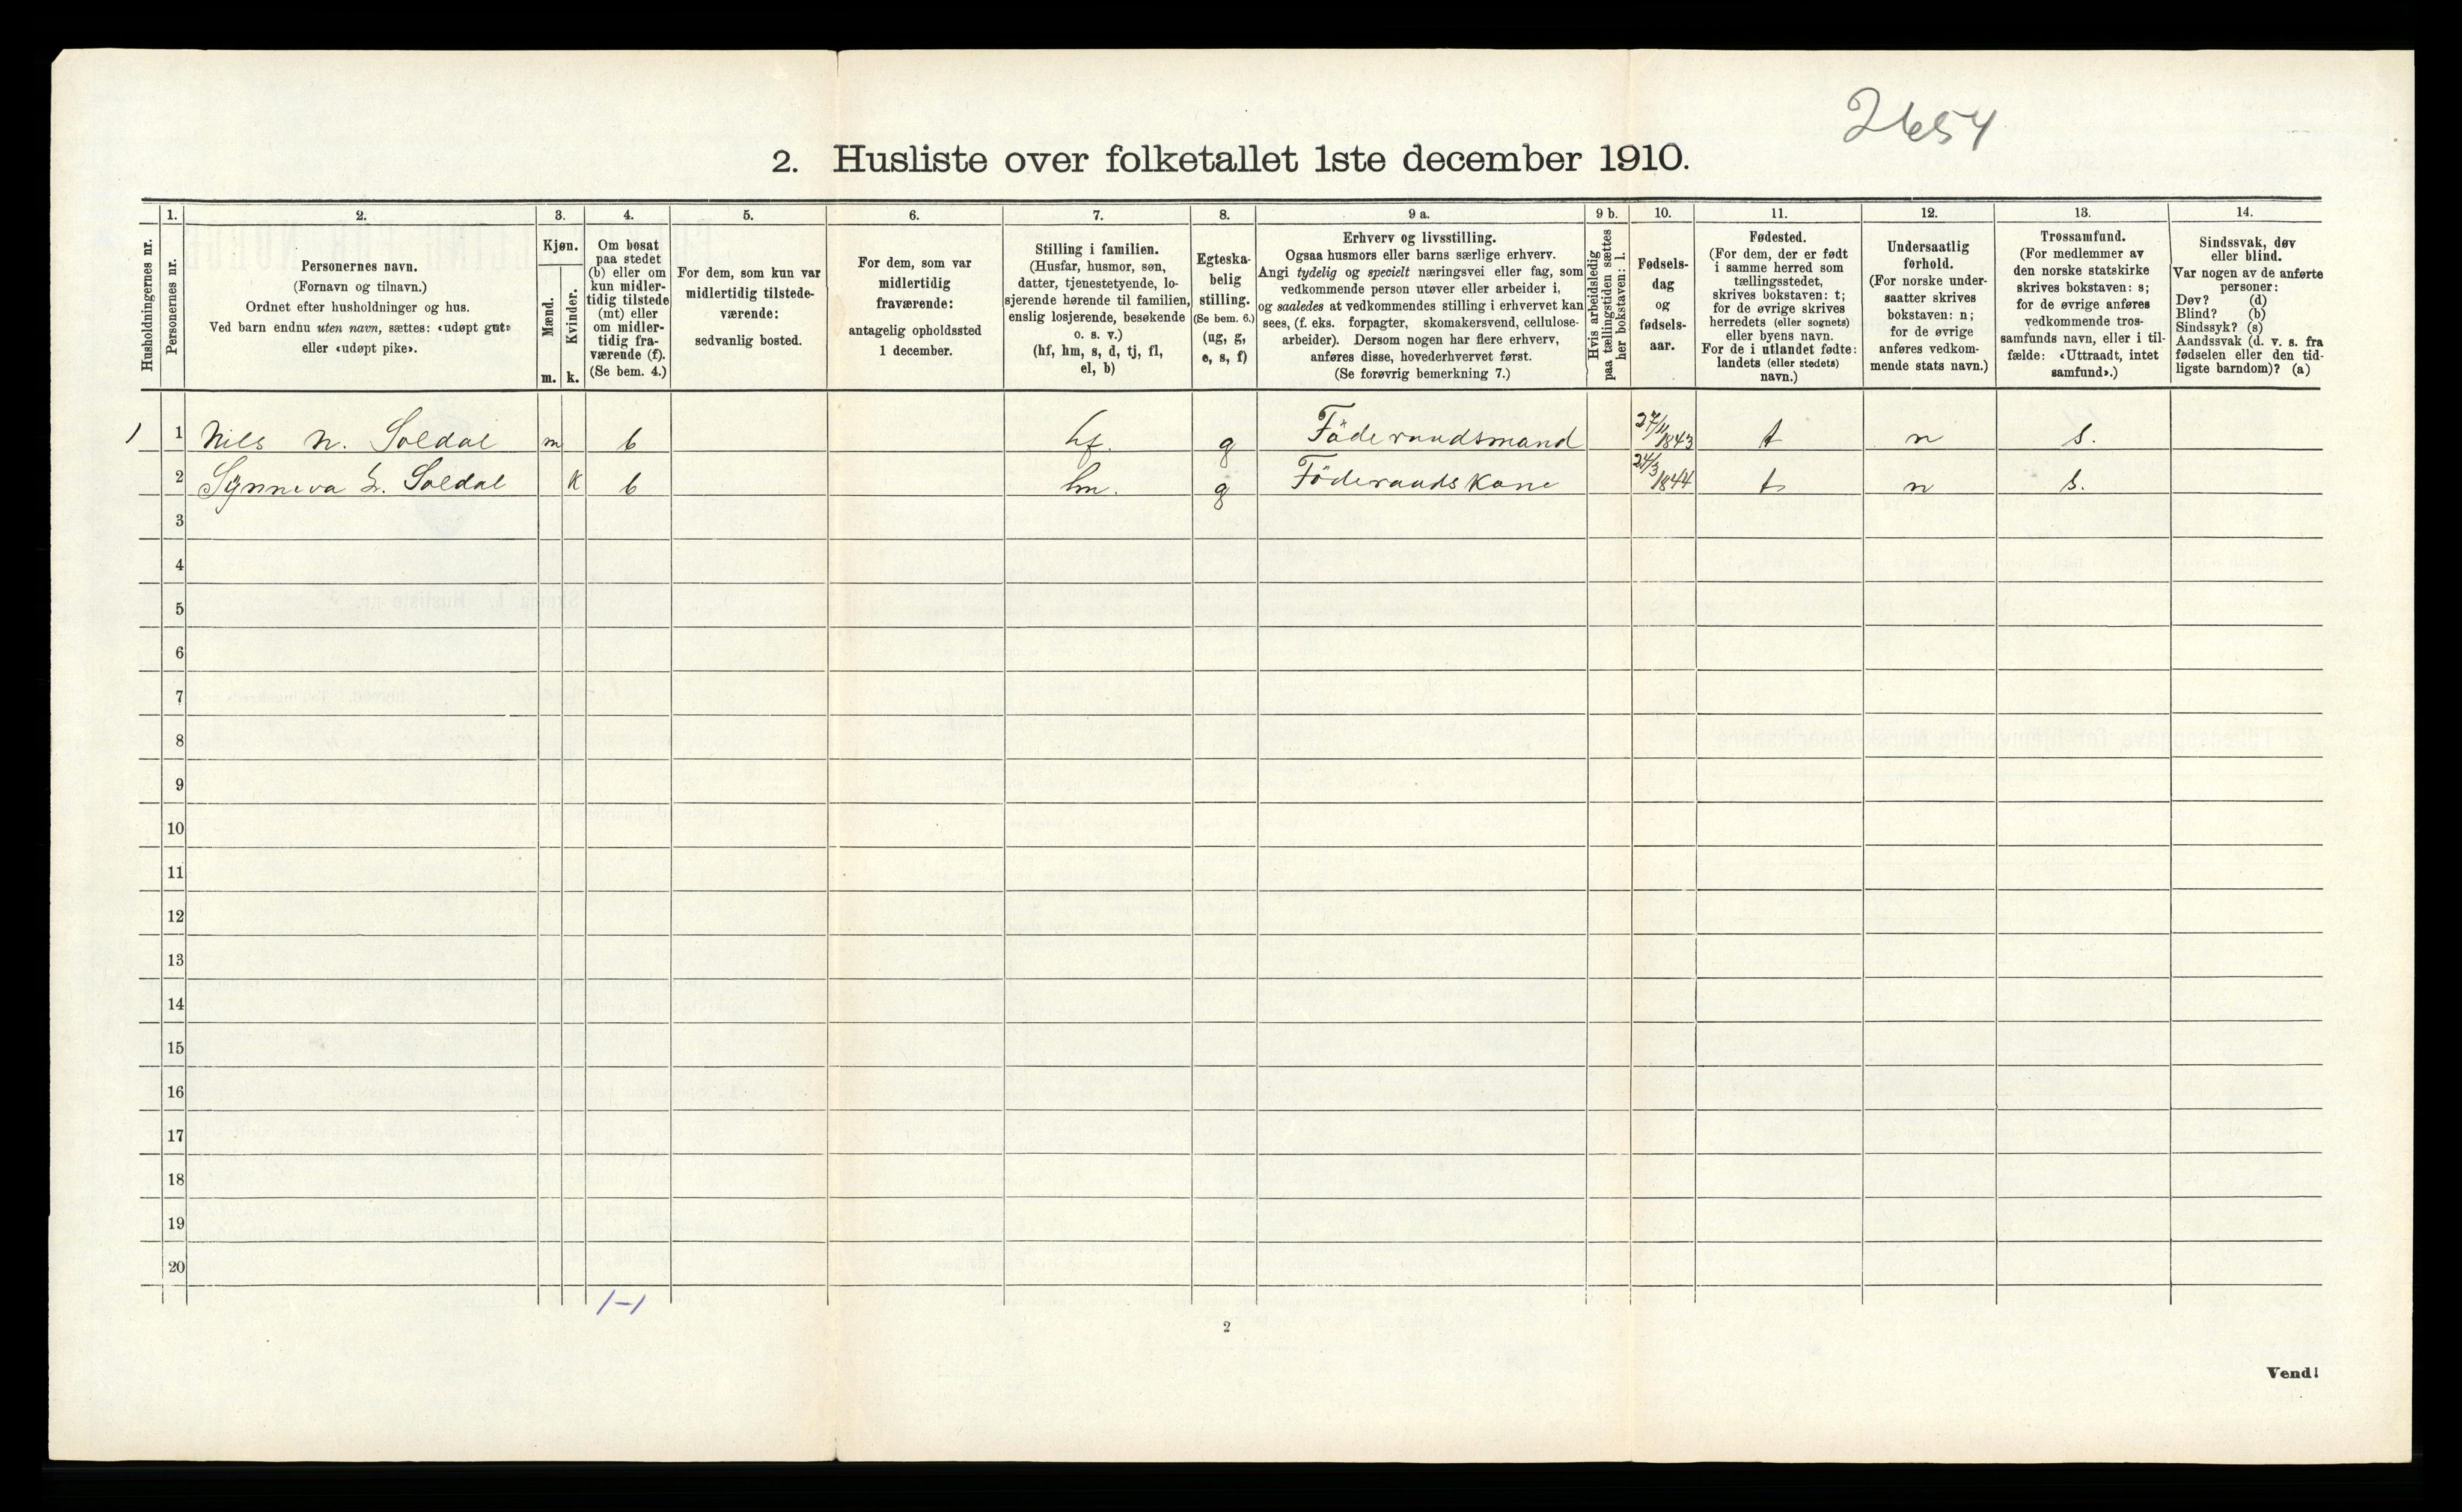 2654
2. Husliste over folketallet 1ste december 1910.
Husholdningernes nr.
1.
Personernes nr.
2.
Personernes navn.
(Fornavn og tilnavn.)
Ordnet efter husholdninger og hus.
Ved barn endnu uten navn, sættes: «udøpt gut»
eller «udøpt pike».
3.
Kjøn.
Mænd.
Kvinder.
m. k.
4.
Om bosat
paa stedet
(b) eller om
kun midler-
tidig tilstede
(mt) eller
om midler-
tidig fra-
værende (f).
(Se bem. 4.)
5.
For dem, som kun var
midlertidig tilstede-
værende:
sedvanlig bosted.
6.
For dem, som var
midlertidig
fraværende:
antagelig opholdssted
1 december.
7.
Stilling i familien.
(Husfar, husmor, søn,
datter, tjenestetyende, lo-
sjerende hørende til familien,
enslig losjerende, besøkende
o. s. v.)
(hf, hm, s, d, tj, fl,
el, b)
8.
Egteska-
belig
stilling.
(Se bem. 6.)
(ug, g,
e, s, f)
9 a.
Erhverv og livsstilling.
Ogsaa husmors eller barns særlige erhverv.
Angi tydelig og specielt næringsvei eller fag, som
vedkommende person utøver eller arbeider i,
og saaledes at vedkommendes stilling i erhvervet kan
sees, (f. eks. forpagter, skomakersvend, cellulose-
arbeider). Dersom nogen har flere erhverv,
anføres disse, hovederhvervet først.
(Se forøvrig bemerkning 7.)
9 b.
Hvis arbeidsledig
paa tællingstiden sættes
her bokstaven: l.
10.
Fødsels-
dag
og
fødsels-
aar.
11.
Fødested.
(For dem, der er født
i samme herred som
tællingsstedet,
skrives bokstaven: t;
for de øvrige skrives
herredets (eller sognets)
eller byens navn.
For de i utlandet fødte:
landets (eller stedets)
navn.)
12.
Undersaatlig
forhold.
(For norske under-
saatter skrives
bokstaven: n;
for de øvrige
anføres vedkom-
mende stats navn.)
13.
Trossamfund.
(For medlemmer av
den norske statskirke
skrives bokstaven: s;
for de øvrige anføres
vedkommende tros-
samfunds navn, eller i til-
fælde: «Uttraadt, intet
samfund».)
14.
Sindssvak, døv
eller blind.
Var nogen av de anførte
personer:
Døv? (d)
Blind? (b)
Sindssyk? (s)
Aandssvak (d. v. s. fra
fødselen eller den tid-
ligste barndom)? (a)
1 1 Nils N. Soldal m b hf. g Föderaadsmand 27/11 1843 t n s.
2 Synneva L. Soldal k b hm. g Föderaadskone 24/3 1844 t n s.
3
4
5
6
7
8
9
10
11
12
13
14
15
16
17
18
19
20
1-1
2
Vend!